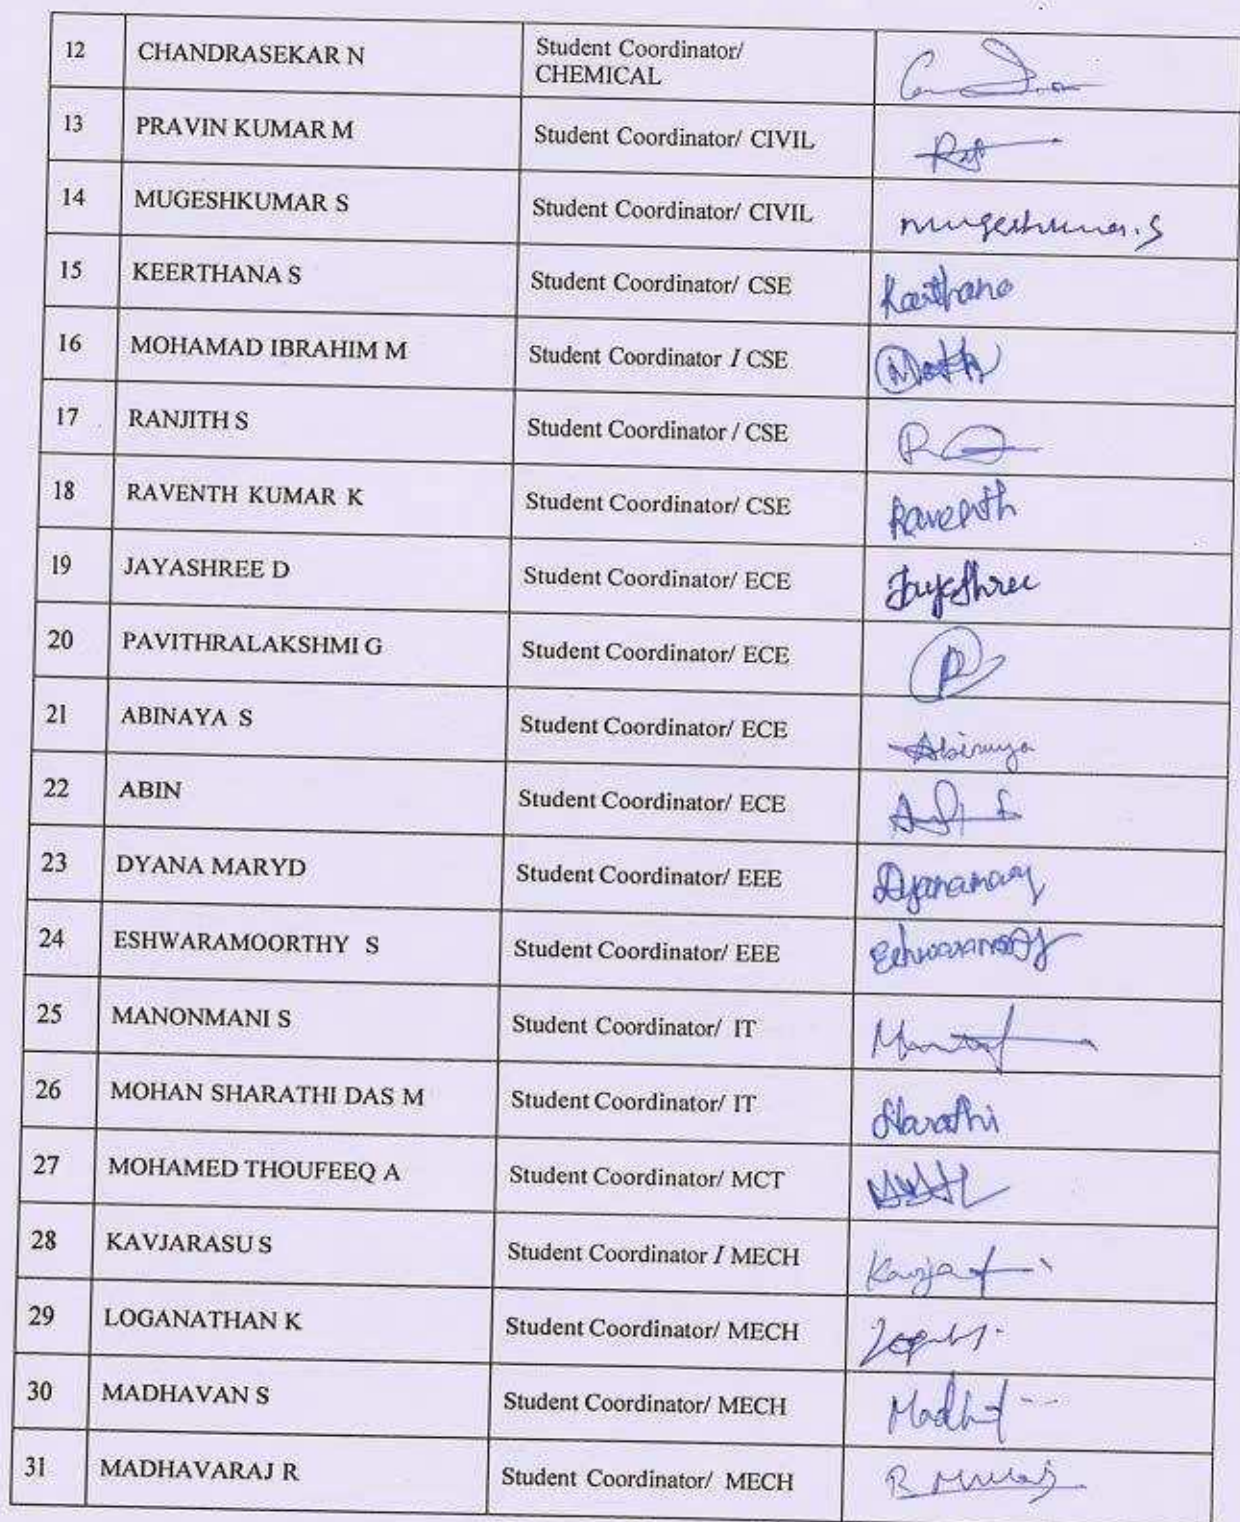 12 CHANDRASEKAR N Student Coordinator/
CHEMICAL
13 PRAVIN KUMAR M Student Coordinator/ CIVIL
14 MUGESHKUMAR S Student Coordinator/ CIVIL Mugeshkumar.S
15 KEERTHANA S Student Coordinator/ CSE Keerthana
16 MOHAMAD IBRAHIM M Student Coordinator I CSE
17 RANJITH S Student Coordinator / CSE
18 RAVENTH KUMAR K Student Coordinator/ CSE Raventh
19 JAYASHREE D Student Coordinator/ ECE Jayashree
20 PAVITHRALAKSHMI G Student Coordinator/ ECE
21 ABINAYA S Student Coordinator/ ECE Abinaya
22 ABIN Student Coordinator/ ECE
23 DYANA MARYD Student Coordinator/ EEE Dyanamary
24 ESHWARAMOORTHY S Student Coordinator/ EEE
25 MANONMANI S Student Coordinator/ IT
26 MOHAN SHARATHI DAS M Student Coordinator/ IT Sharathi
27 MOHAMED THOUFEEQ A Student Coordinator/ MCT
28 KAVJARASU S Student Coordinator I MECH
29 LOGANATHAN K Student Coordinator/ MECH
30 MADHAVAN S Student Coordinator/ MECH
31 MADHAVARAJ R Student Coordinator/ MECH